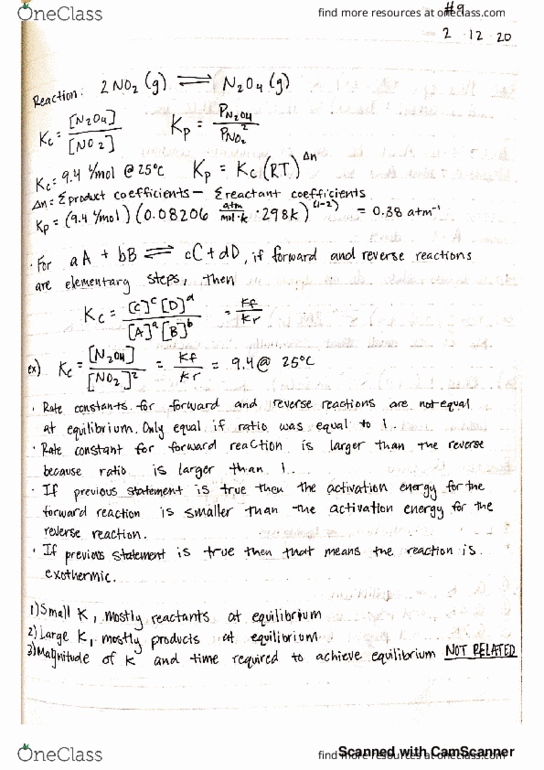 OneClass
find more resources at oneclass.com
#9
2 · 12 · 20
Reaction: 2NO2 (g) ⇌ N2O4 (g)
Kc = [N2O4] / [NO2] Kp = P N2O4 / P NO2 ²
Kc = 9.4 L/mol @ 25°C Kp = Kc (RT)^Δn
Δn = Σ product coefficients − Σ reactant coefficients
Kp = (9.4 L/mol) (0.08206 atm/mol·K · 298K)^(1-2) = 0.38 atm⁻¹
· For aA + bB ⇌ cC + dD, if forward and reverse reactions
are elementary steps, then
Kc = [C]^c [D]^d / [A]^a [B]^b = Kf / Kr
ex) Kc = [N2O4] / [NO2]² = Kf / Kr = 9.4 @ 25°C
· Rate constants for forward and reverse reactions are not equal
at equilibrium. Only equal if ratio was equal to 1.
· Rate constant for forward reaction is larger than the reverse
because ratio is larger than 1.
· If previous statement is true then the activation energy for the
forward reaction is smaller than the activation energy for the
reverse reaction.
· If previous statement is true then that means the reaction is
exothermic.
1) Small K, mostly reactants at equilibrium
2) Large K, mostly products at equilibrium
3) Magnitude of K and time required to achieve equilibrium NOT RELATED
OneClass
find more resources at oneclass.com
Scanned with CamScanner